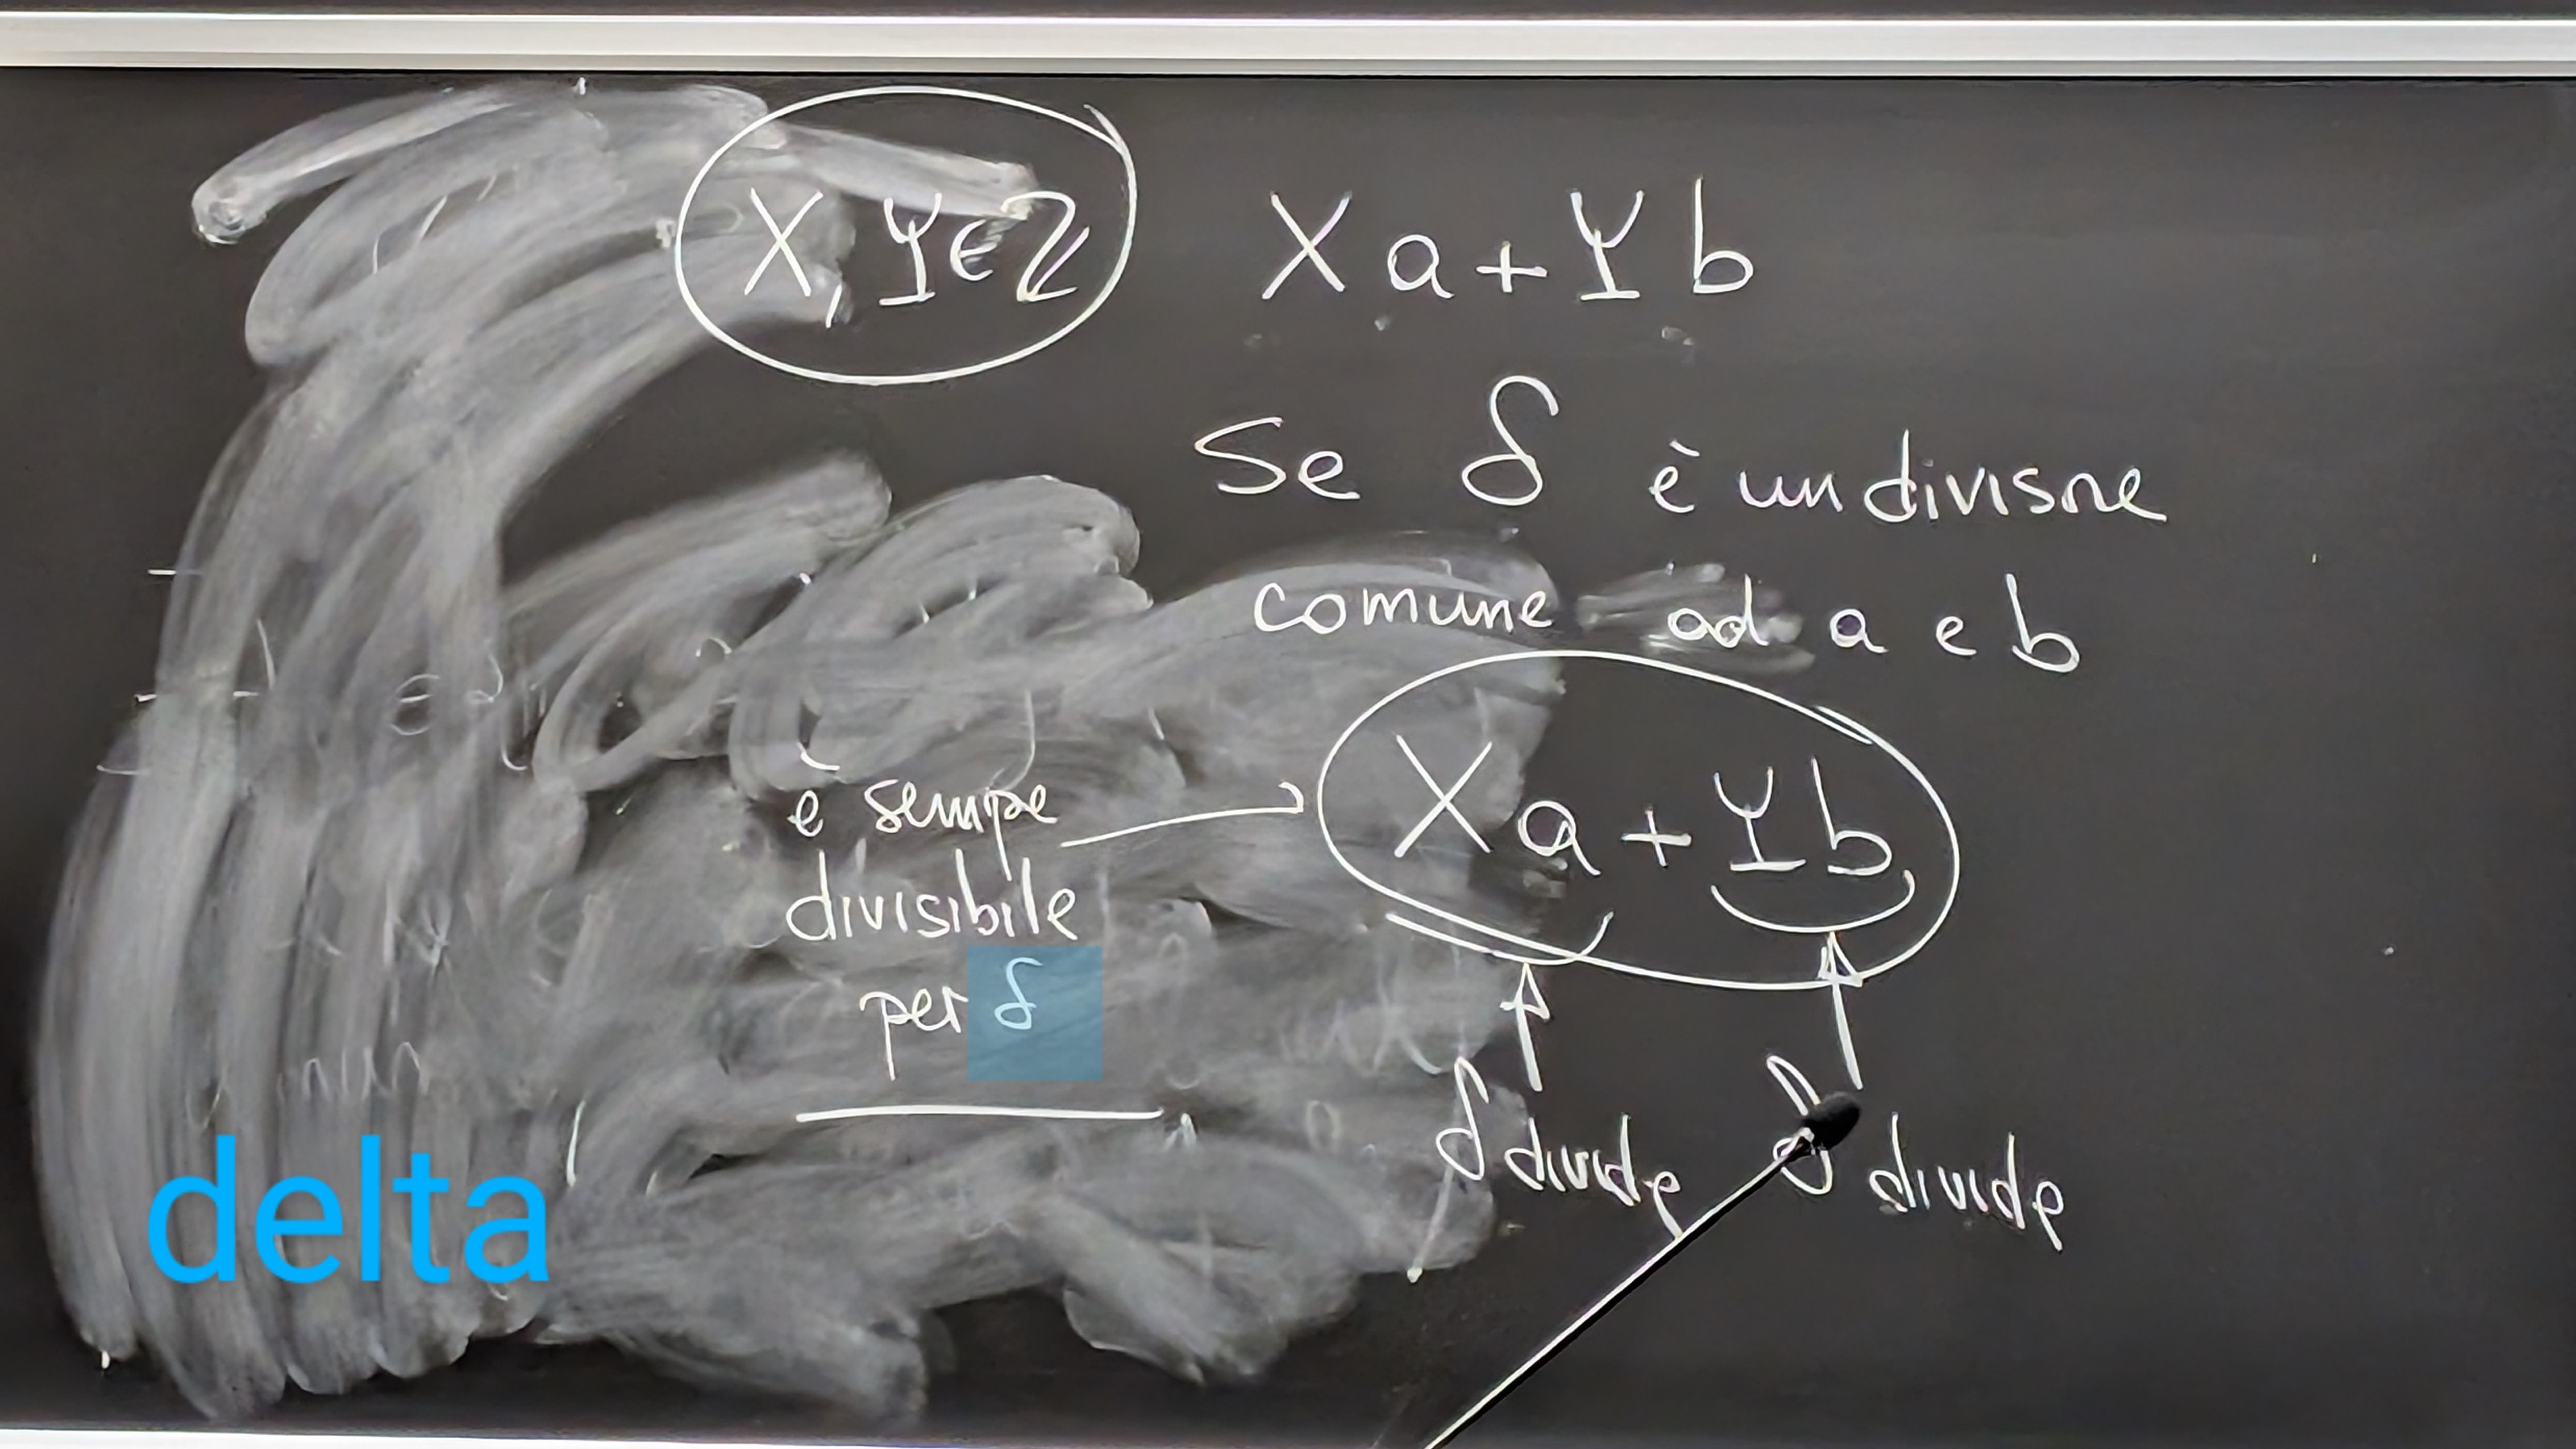 X, Y ∈ Z
Xa + Yb
Se δ è un divisore
comune ad a e b
Xa + Yb
è sempre
divisibile
per δ
δ divide
δ divide
delta